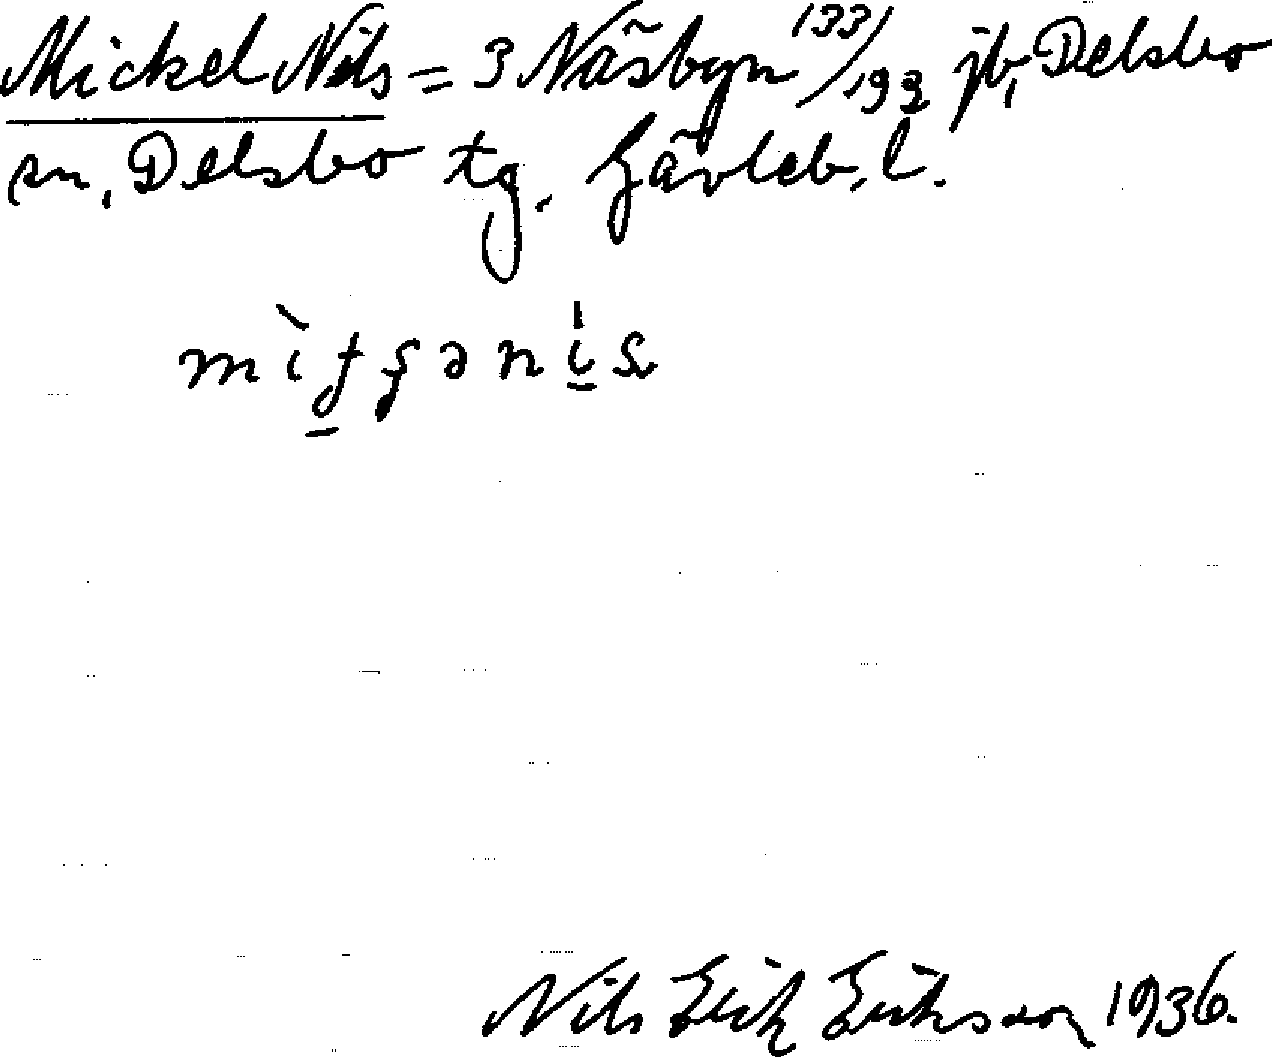 Mickel Nils = 3 Näsbyn 133/193 jb, Delsbo
sn, Delsbo tg. Gävleb. l.
Nils Erik Eriksson 1936.